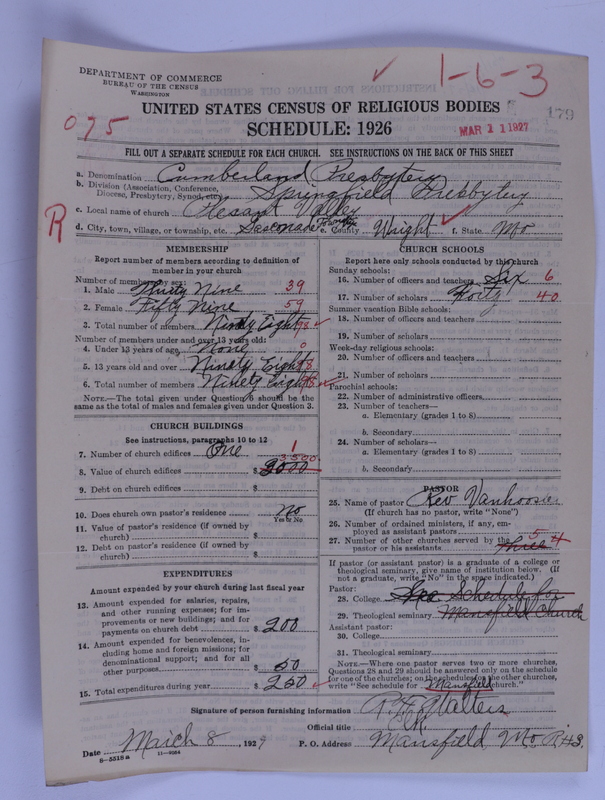 DEPARTMENT OF COMMERCE
BUREAU OF THE CENSUS
WASHINGTON
1-6-3
UNITED STATES CENSUS OF RELIGIOUS BODIES
179
075
SCHEDULE: 1926
MAR 11 1927
FILL OUT A SEPARATE SCHEDULE FOR EACH CHURCH. SEE INSTRUCTIONS ON THE BACK OF THIS SHEET
a. Denomination Cumberland Presbytery
b. Division (Association, Conference, Diocese, Presbytery, Synod, etc.) Springfield Presbytery
R
c. Local name of church Plesant Valley
d. City, town, village, or township, etc. Township e. County Wright f. State Mo
MEMBERSHIP
Report number of members according to definition of member in your church
Number of members by sex:
1. Male Thirty Nine 39
2. Female Fifty Nine 59
3. Total number of members Ninety Eight 98
Number of members under and over 13 years old:
4. Under 13 years of age None 0
5. 13 years old and over Ninety Eight 98
6. Total number of members Ninety Eight 98
NOTE.—The total given under Question 6 should be the same as the total of males and females given under Question 3.
CHURCH BUILDINGS
See instructions, paragraphs 10 to 12
7. Number of church edifices One 1
8. Value of church edifices $ 3000 3500
9. Debt on church edifices $
10. Does church own pastor's residence No
Yes or No
11. Value of pastor's residence (if owned by church) $
12. Debt on pastor's residence (if owned by church) $
EXPENDITURES
Amount expended by church during last fiscal year
13. Amount expended for salaries, repairs, and other running expenses; for improvements or new buildings; and for payments on church debt $ 200
14. Amount expended for benevolences, including home and foreign missions; for denominational support; and for all other purposes $ 50
15. Total expenditures during year $ 250
CHURCH SCHOOLS
Report here only schools conducted by this church
Sunday schools:
16. Number of officers and teachers Six 6
17. Number of scholars Forty 40
Summer vacation Bible schools:
18. Number of officers and teachers
19. Number of scholars
Week-day religious schools:
20. Number of officers and teachers
21. Number of scholars
Parochial schools:
22. Number of administrative officers
23. Number of teachers—
a. Elementary (grades 1 to 8)
b. Secondary
24. Number of scholars—
a. Elementary (grades 1 to 8)
b. Secondary
PASTOR
25. Name of pastor Rev Vanhoosier
(If church has no pastor, write "None")
26. Number of ordained ministers, if any, employed as assistant pastors
27. Number of other churches served by the pastor or his assistants Three 5 4
If pastor (or assistant pastor) is a graduate of a college or theological seminary, give name of institution below. (If not a graduate, write "No" in the space indicated.)
Pastor:
28. College See Schedule for
29. Theological seminary Mansfield Church
Assistant pastor:
30. College
31. Theological seminary
NOTE.—Where one pastor serves two or more churches, Questions 28 and 29 should be answered only on the schedule for one of the churches; on the schedules for the other churches, write "See schedule for Mansfield church."
Signature of person furnishing information Walters
Official title
Date March 8, 1927 P. O. Address Mansfield, Mo. R#3
8-5518a 11-9064